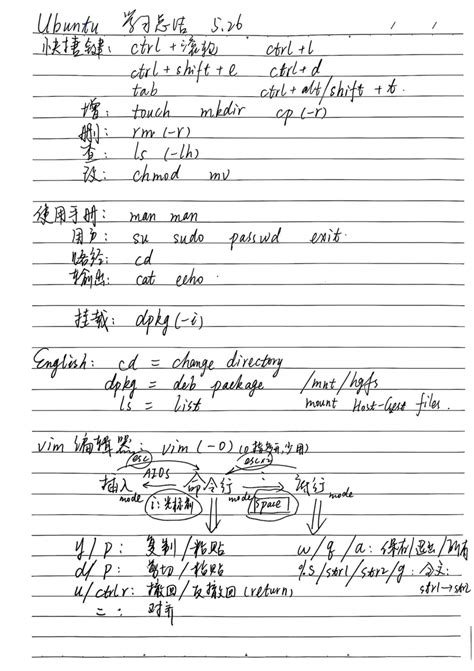 Ubuntu 学习总结 5.26
快捷键: ctrl+滚轮 ctrl+l
ctrl+shift+e ctrl+d
tab ctrl+alt/shift+t.
增: touch mkdir cp(-r)
删: rm(-r)
查: ls(-lh)
改: chmod mv
使用手册: man man
用户: su sudo passwd exit.
路径: cd
输出: cat echo.
挂载: dpkg(-i)
English: cd = change directory
dpkg = deb package /mnt/hgfs
ls = list mount Host-Gest files.
vim 编辑器: vim(-O)
esc esc×2
AIOS :
插入 mode 命令行 mode mode
i:光标前 space
y/p: 复制/粘贴 w/q/a: 保存/退出/所有
d/p: 剪切/粘贴 %s/str1/str2/g: 全文:
u/ctrl r: 撤回/反撤回(return) str1→str2
==: 对齐